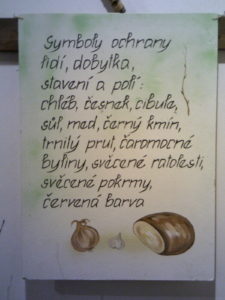 Symboly ochrany
lidí, dobytka,
stavení a polí:
chléb, česnek, cibule,
sůl, med, černý kmín,
trnitý prut, čaromocné
byliny, svěcené ratolesti,
svěcené pokrmy,
červená barva